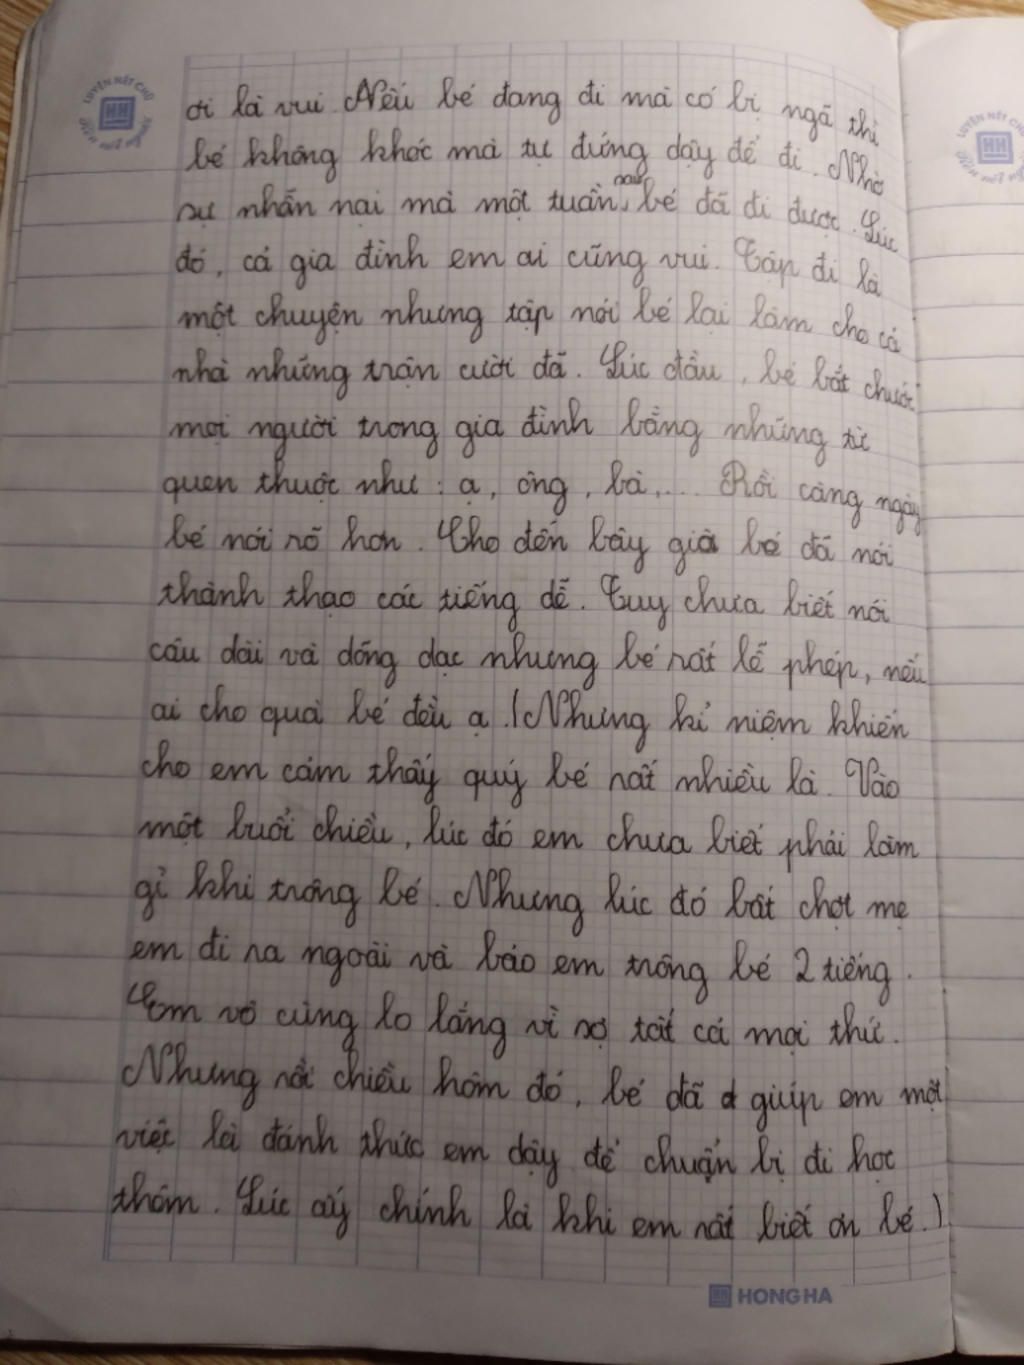 LUYỆN NÉT CHỮ
ơi là vui. Nếu bé đang đi mà có bị ngã thì
bé không khóc mà tự đứng dậy để đi. Nhờ
sự nhẫn nại mà một tuần sau, bé đã đi được. Lúc
đó, cả gia đình em ai cũng vui. Tập đi là
một chuyện nhưng tập nói bé lại làm cho cả
nhà những trận cười đã. Lúc đầu, bé bắt chước
mọi người trong gia đình bằng những từ
quen thuộc như: ạ, ông, bà,... Rồi càng ngày
bé nói rõ hơn. Cho đến bây giờ bé đã nói
thành thạo các tiếng dễ. Tuy chưa biết nói
câu dài và dõng dạc nhưng bé rất lễ phép, nếu
ai cho quà bé đều ạ. (Nhưng kỉ niệm khiến
cho em cảm thấy quý bé rất nhiều là. Vào
một buổi chiều, lúc đó em chưa biết phải làm
gì khi trông bé. Nhưng lúc đó bất chợt mẹ
em đi ra ngoài và bảo em trông bé 2 tiếng.
Em vô cùng lo lắng vì sợ tất cả mọi thứ.
Nhưng rồi chiều hôm đó, bé đã giúp em một
việc là đánh thức em dậy để chuẩn bị đi học
thêm. Lúc ấy chính là khi em rất biết ơn bé.)
HONG HA
LUYỆN NÉT CHỮ